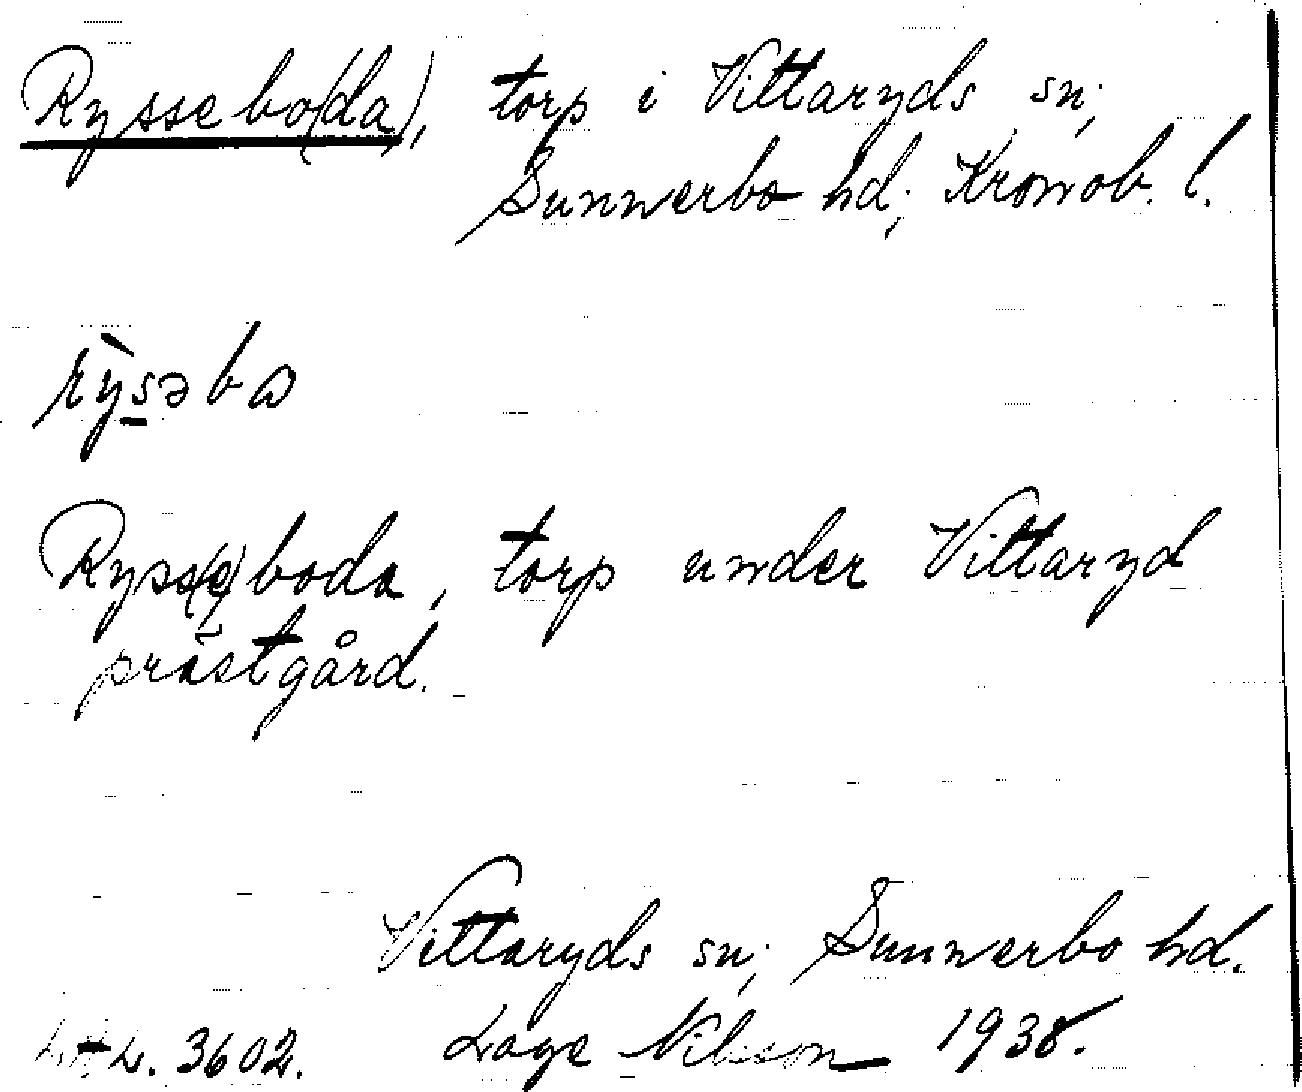 Ryssebo(da), torp i Vittaryds sn;
Sunnerbo hd; Kronob. l.
rỳsəbω
Ryss(e)boda, torp under Vittaryd
prästgård.
Vittaryds sn; Sunnerbo hd.
3602. Lage Nilsson 1938.